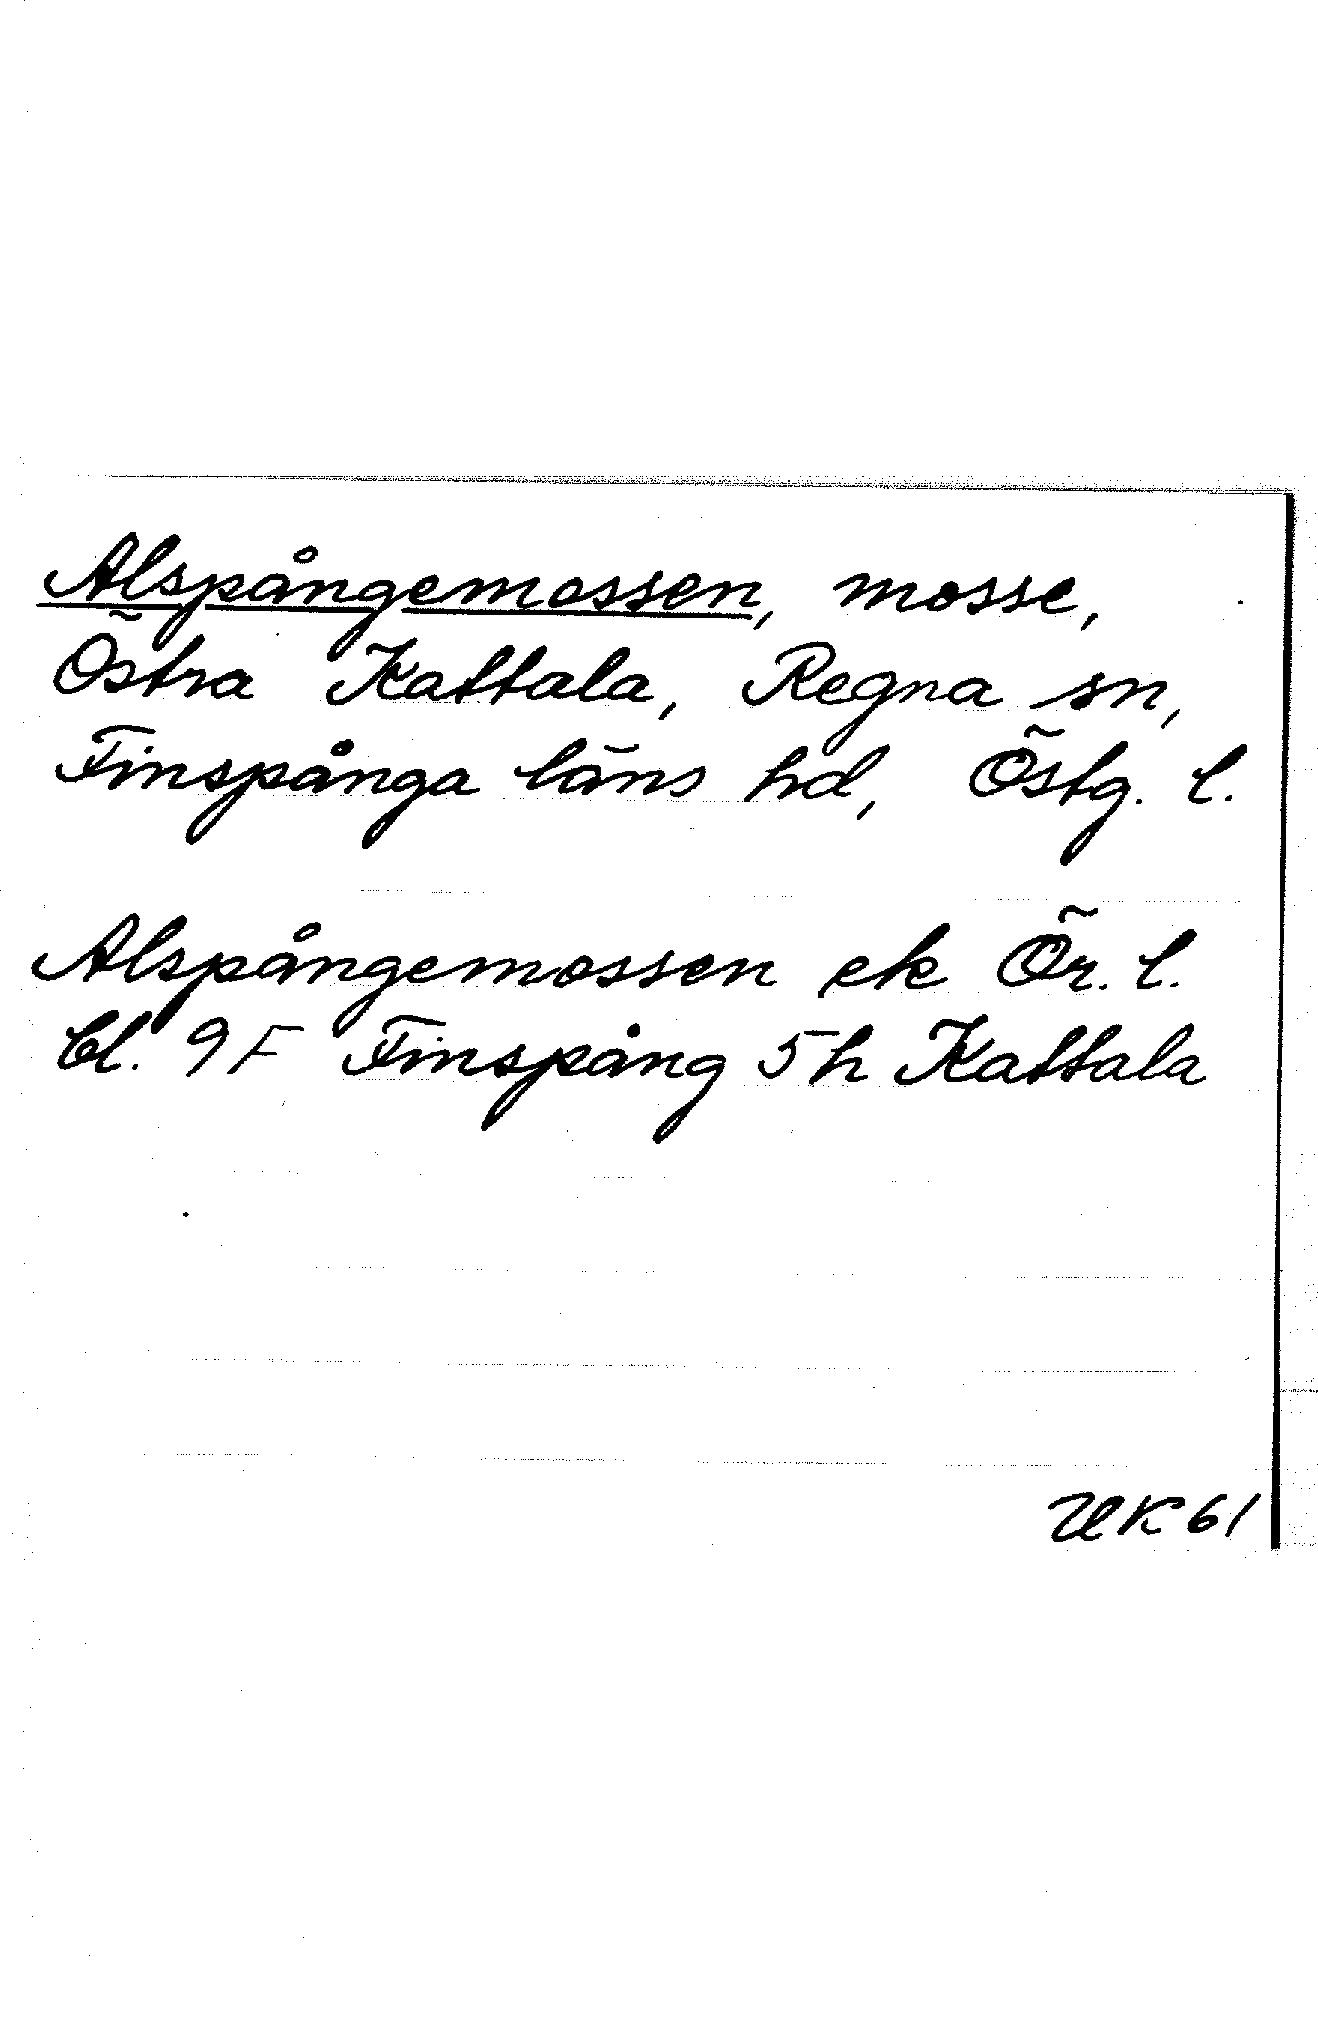 Alspångemossen, mosse,
Östra Kattala, Regna sn,
Finspånga läns hd, Östg. l.
Alspångemossen ek Ör. l.
bl. 9F Finspång 5h Kattala
UK 61